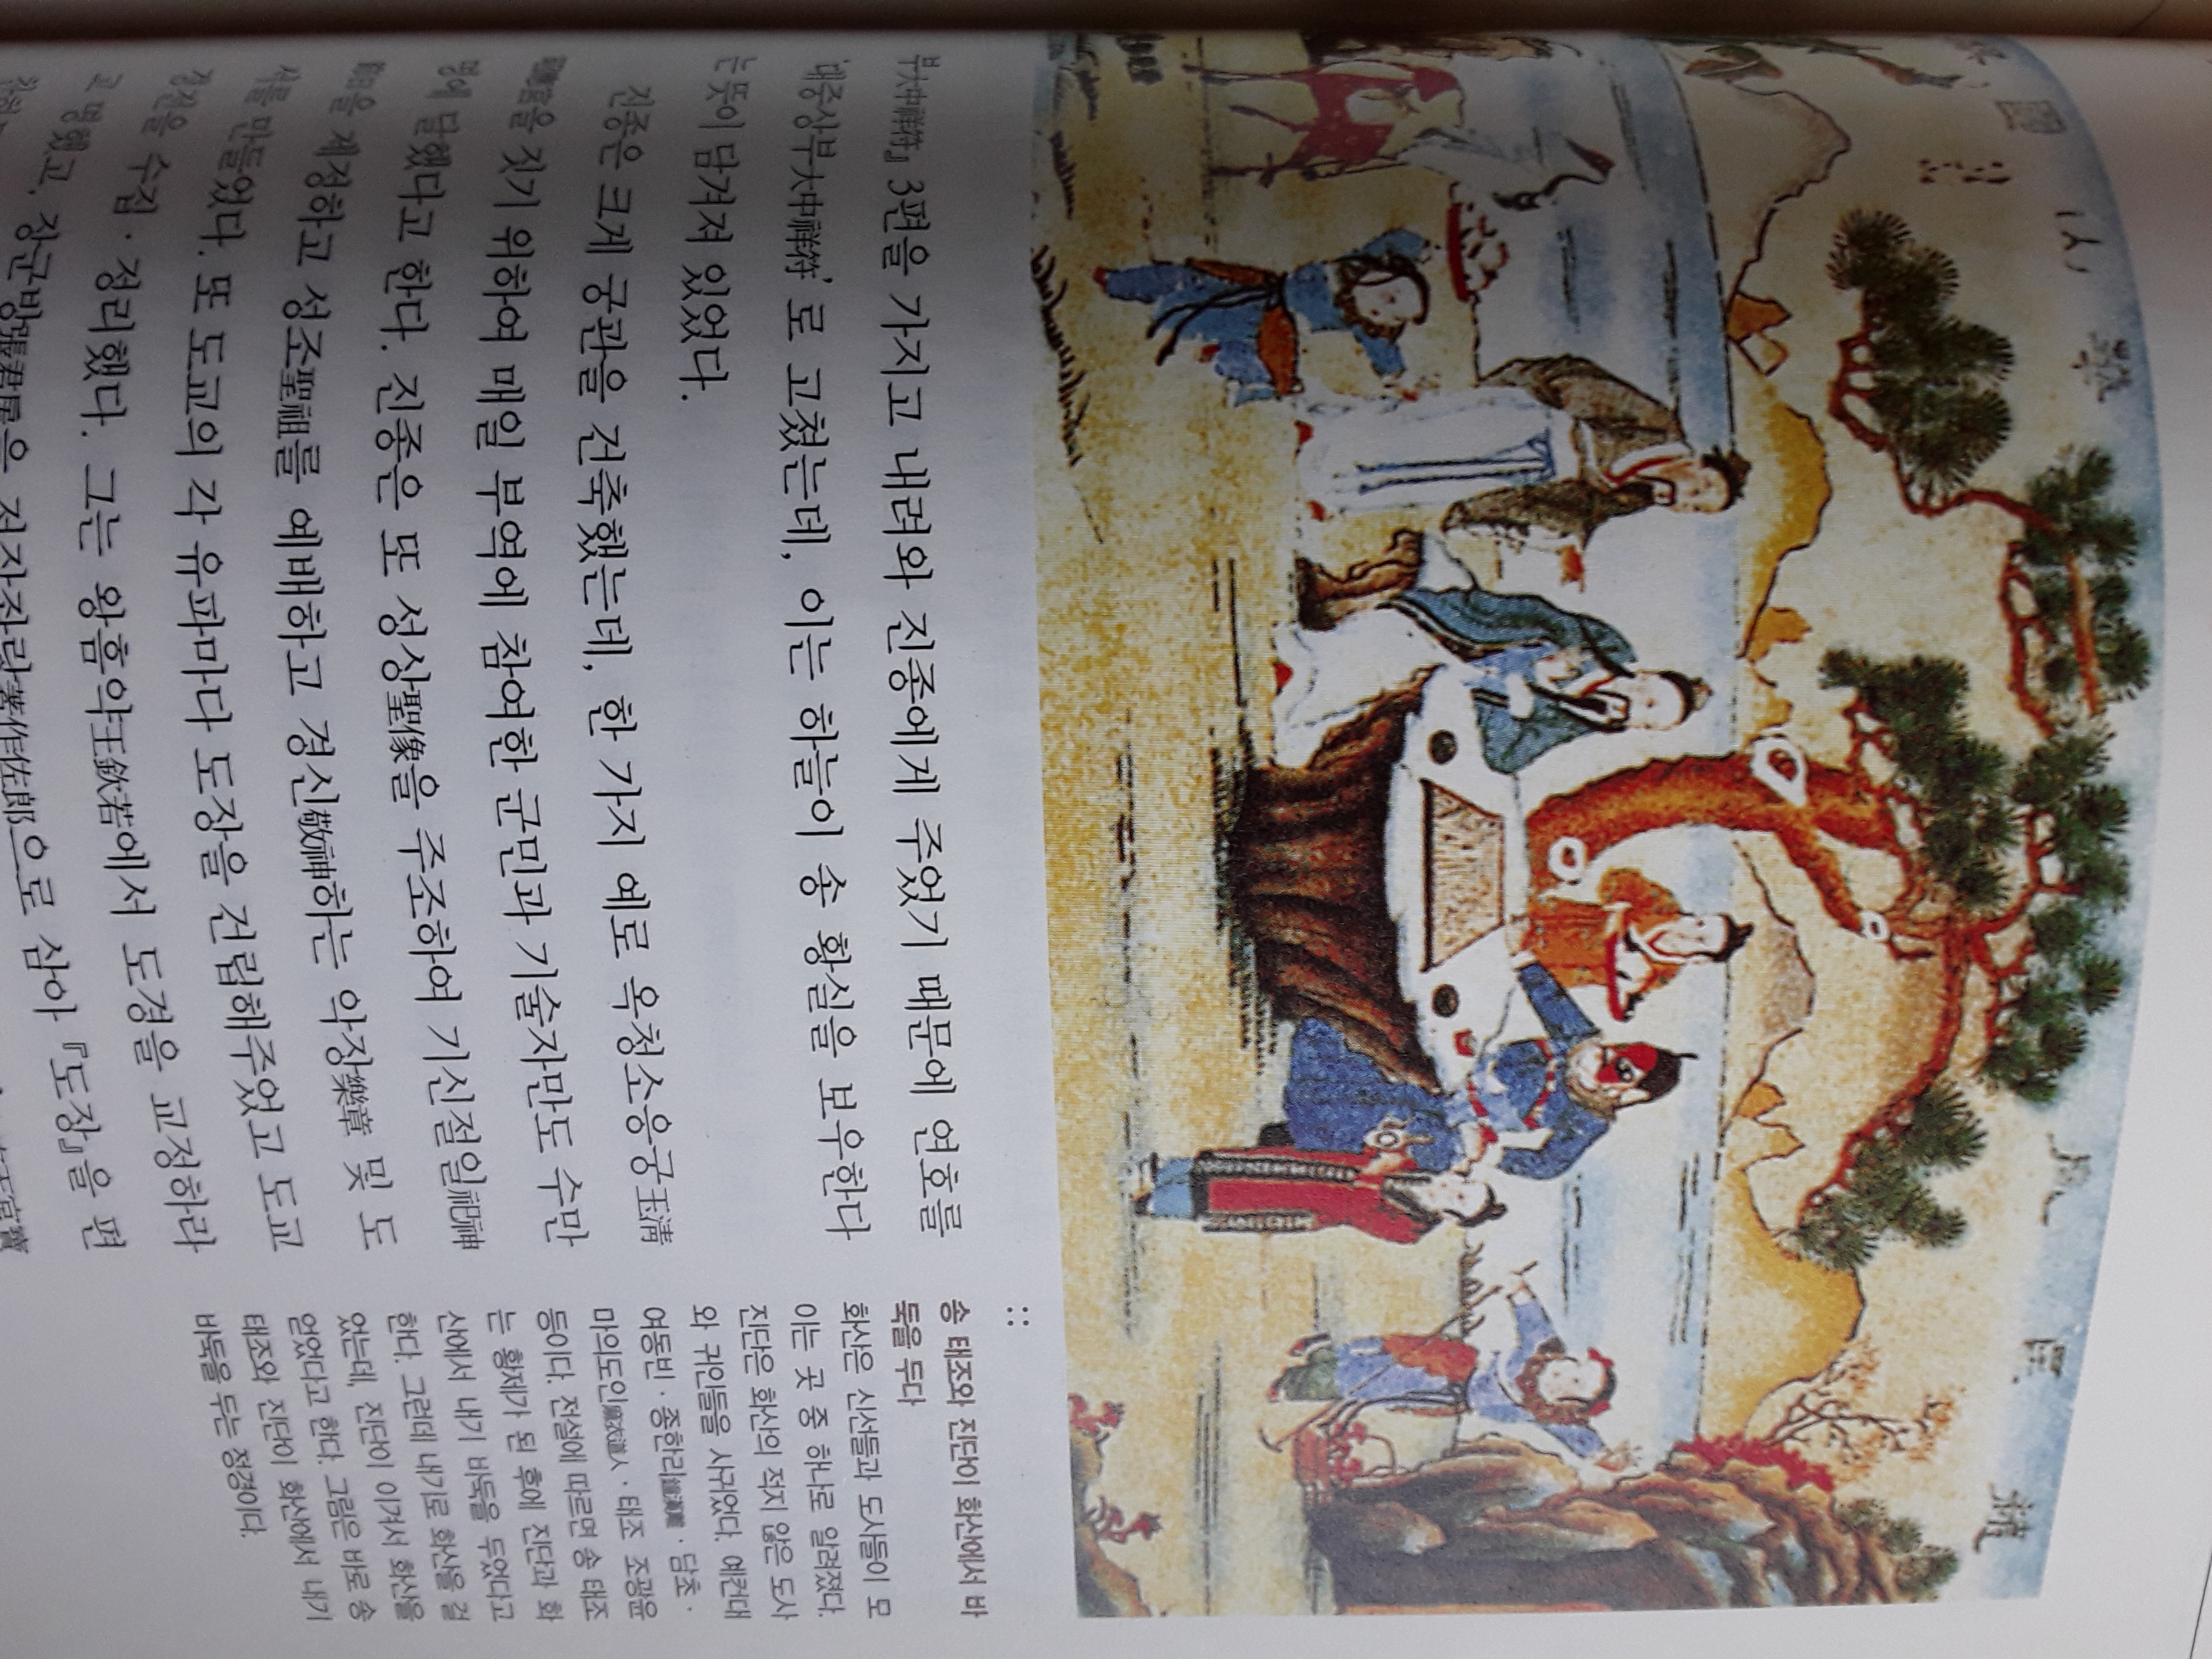 부大中祥符」 3편을 가지고 내려와 진종에게 주었기 때문에 연호를
'대중상부大中祥符'로 고쳤는데, 이는 하늘이 송 황실을 보우한다
는 뜻이 담겨져 있었다.
진종은 크게 궁관을 건축했는데, 한 가지 예로 옥청소응궁玉淸
을 짓기 위하여 매일 부역에 참여한 군민과 기술자만도 수만
명에 달했다고 한다. 진종은 또 성상聖像을 주조하여 기신절일祀神
을 제정하고 성조聖祖를 예배하고 경신敬神하는 악장樂章 및 도
를 만들었다. 또 도교의 각 유파마다 도장을 건립해주었고 도교
경전을 수집·정리했다. 그는 왕흠약王欽若에서 도경을 교정하라
고 명했고, 장군방張君房을 저작좌랑著作佐郎으로 삼아 『도장』을 편
송 태조와 진단이 화산에서 바
둑을 두다
화산은 신선들과 도사들이 모
이는 곳 중 하나로 알려졌다.
진단은 화산의 적지 않은 도사
와 귀인들을 사귀었다. 예컨대
여동빈·종한리鍾漢離·담초·
마의도인麻衣道人·태조 조광윤
등이다. 전설에 따르면 송 태조
는 황제가 된 후에 진단과 화
산에서 내기 바둑을 두었다고
한다. 그런데 내기로 화산을 걸
었는데, 진단이 이겨서 화산을
얻었다고 한다. 그림은 바로 송
태조와 진단이 화산에서 내기
바둑을 두는 정경이다.